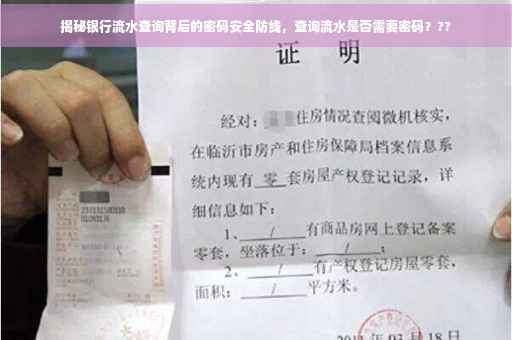 揭秘银行流水查询背后的密码安全防线，查询流水是否需要密码？??
证 明
经对：住房情况查阅微机核实，
在临沂市房产和住房保障局档案信息系
统内现有 零 套房屋产权登记记录，详
细信息如下：
1、 / 有商品房网上登记备案
零套，坐落位于： / ；
2、 / 有产权登记房屋零套，
面积： / 平方米。